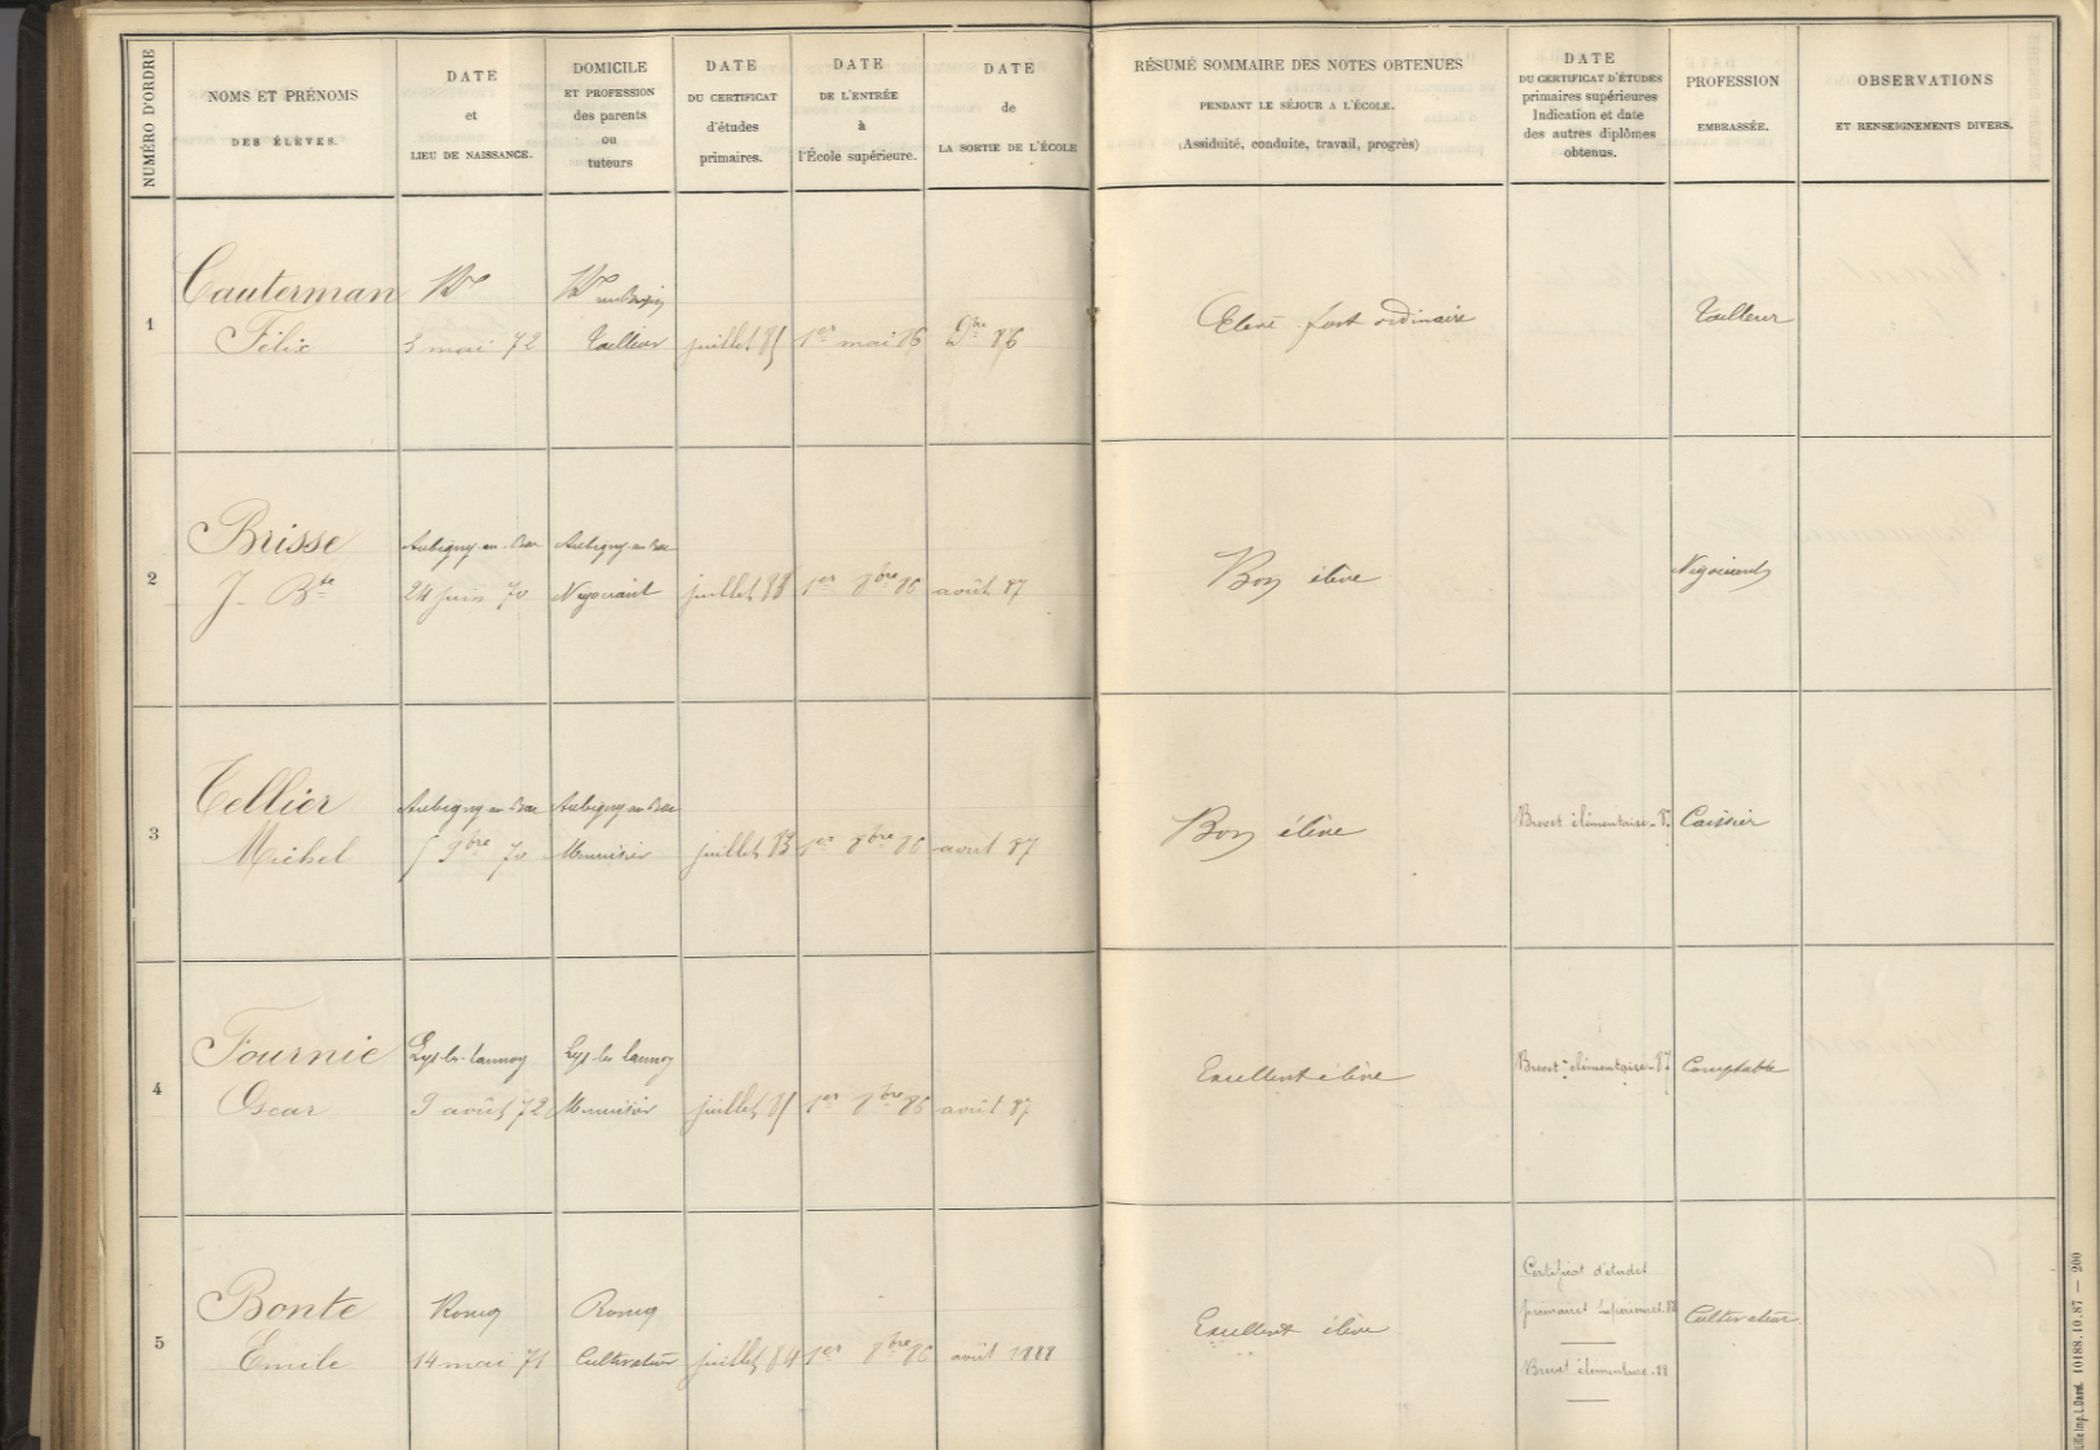 NUMÉRO D'ORDRE
NOMS ET PRÉNOMS
DES ÉLÈVES.
DATE
et
LIEU DE NAISSANCE.
DOMICILE
ET PROFESSION
des parents
ou
tuteurs
DATE
DU CERTIFICAT
d'études
primaires.
DATE
DE L'ENTRÉE
à
l'École supérieure.
DATE
de
LA SORTIE DE L'ÉCOLE
RÉSUMÉ SOMMAIRE DES NOTES OBTENUES
PENDANT LE SÉJOUR A L'ÉCOLE.
(Assiduité, conduite, travail, progrès)
DATE
DU CERTIFICAT D'ÉTUDES
primaires supérieures
Indication et date
des autres diplômes
obtenus.
PROFESSION
EMBRASSÉE.
OBSERVATIONS
ET RENSEIGNEMENTS DIVERS.
1
Cauterman
Félix
mai 72
Tailleur
juillet 85
1er mai 86
86
Elève fort ordinaire
Tailleur
2
Brisse
J. Bte
Aubigny-au-Bac
24 juin 70
Aubigny-au-Bac
Négociant
juillet
1er 8bre 86
août 87
Bon élève
Négociant
3
Tellier
Michel
Aubigny-au-Bac
5 9bre 70
Aubigny-au-Bac
Menuisier
juillet 83
1er 8bre 86
août 87
Bon élève
Brevet élémentaire - 87
Caissier
4
Fournie
Oscar
Lys-lez-lannoy
9 août 72
Lys-lez lannoy
Menuisier
juillet 85
1er 8bre 86
août 87
Excellent élève
Brevet élémentaire - 87
Comptable
5
Bonte
Emile
Roncq
14 mai 71
Roncq
Cultivateur
juillet 84
1er 8bre 86
août 1888
Excellent élève
Certificat d'études
primaires supérieures - 88
Brevet élémentaire - 88
Cultivateur.
Lille Imp. L. Danel. 10188.10.87 — 200